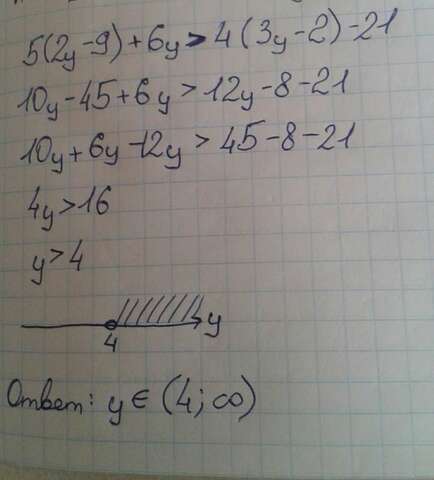 5(2y-9)+6y>4(3y-2)-21
10y-45+6y>12y-8-21
10y+6y-12y>45-8-21
4y>16
y>4
4 y
Ответ: y∈(4;∞)